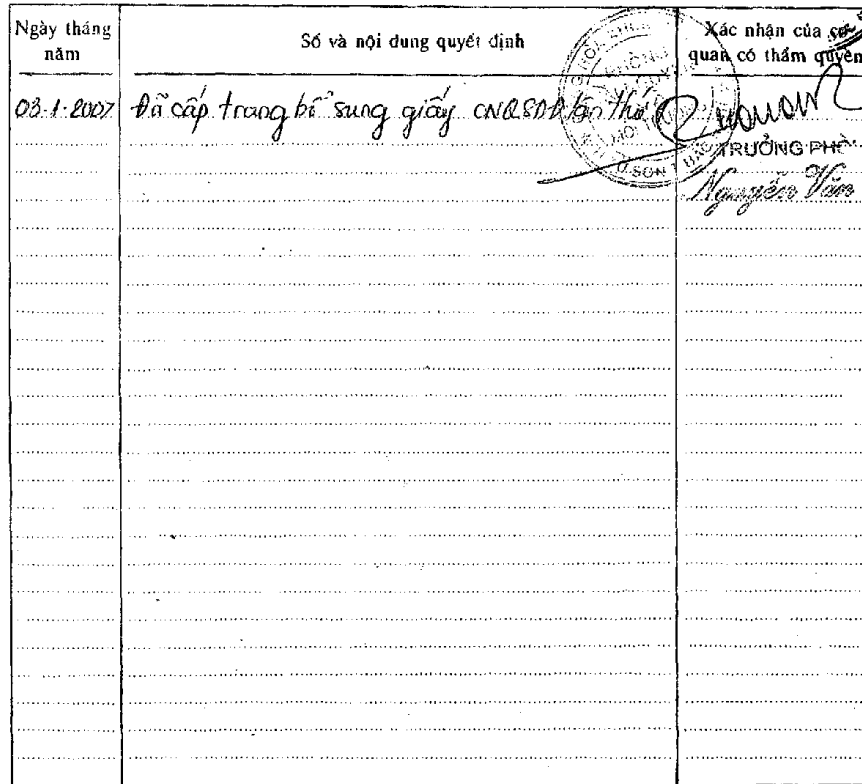 Ngày tháng năm
Số và nội dung quyết định
Xác nhận của cơ quan có thẩm quyền
03-1-2007 Đã cấp trang bổ sung giấy CNQSDĐ lần thứ
TRƯỞNG PHÒ
Nguyễn Văn